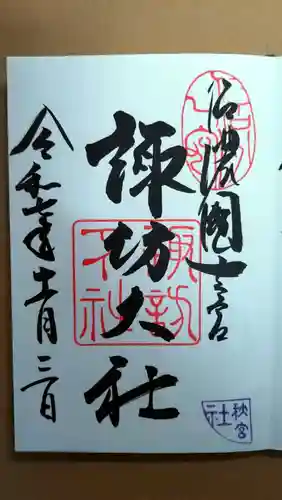 信濃國一之宮
諏訪大社
令和年十一月三日
諏訪大社
秋宮
社